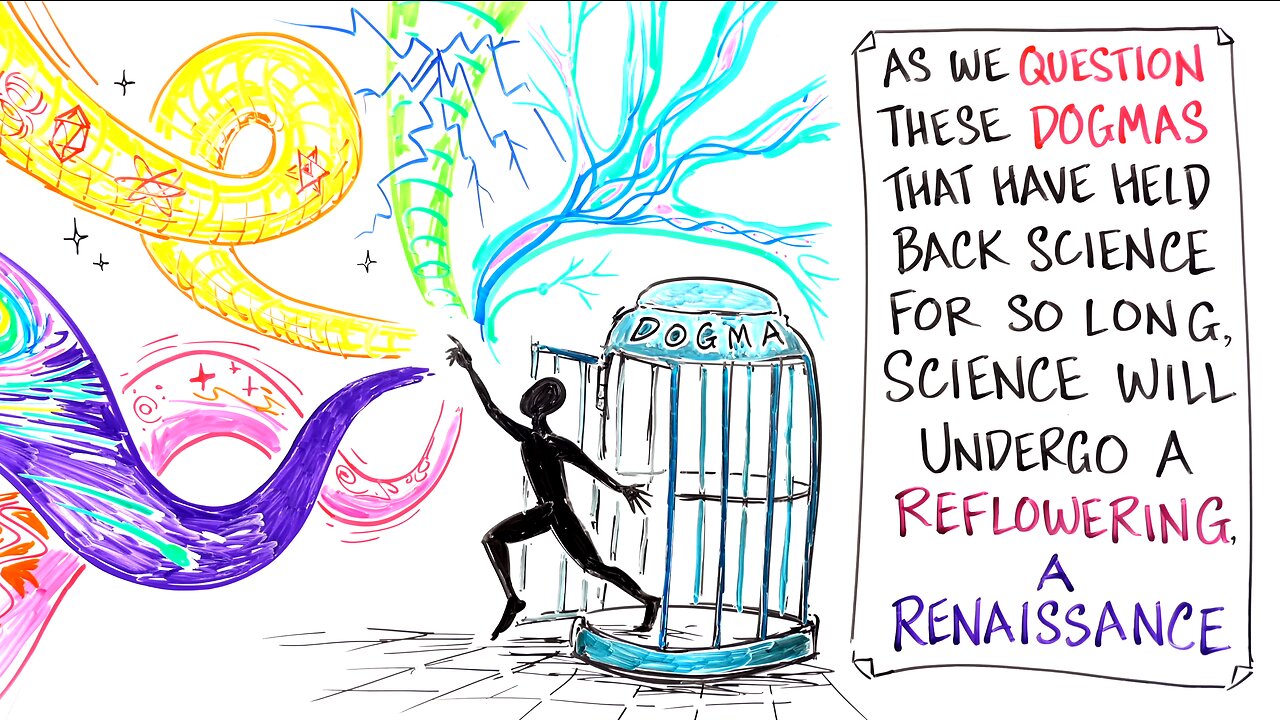 DOGMA
AS WE QUESTION
THESE DOGMAS
THAT HAVE HELD
BACK SCIENCE
FOR SO LONG,
SCIENCE WILL
UNDERGO A
REFLOWERING,
A
RENAISSANCE